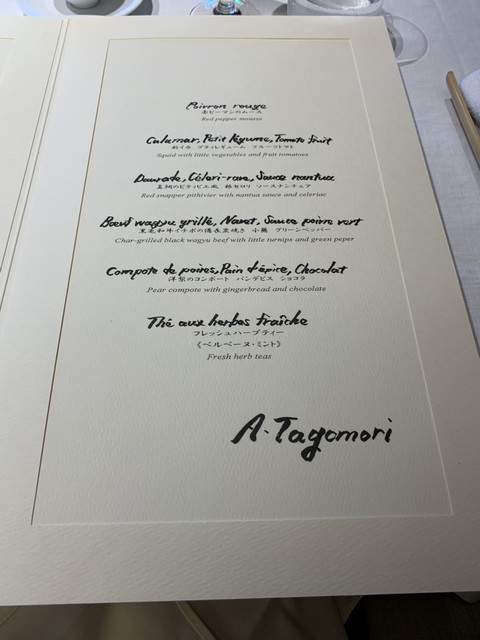 Poivron rouge
赤ピーマンのムース
Red pepper mousse
Calamar, Petit légume, Tomato fruit
釣イカ プティレギューム フルーツトマト
Squid with little vegetables and fruit tomatoes
Daurade, Céleri-rave, Sauce nantua
真鯛のピティビエ風 根セロリ ソースナンチュア
Red snapper pithivier with nantua sauce and celeriac
Bœuf wagyu grillé, Navet, Sauce poivre vert
黒毛和牛イチボの備長炭焼き 小蕪 グリーンペッパー
Char-grilled black wagyu beef with little turnips and green peper
Compote de poires, Pain d'épice, Chocolat
洋梨のコンポート パンデピス ショコラ
Pear compote with gingerbread and chocolate
Thé aux herbes fraîche
フレッシュハーブティー
《ベルベーヌ・ミント》
Fresh herb teas
A. Tagomori